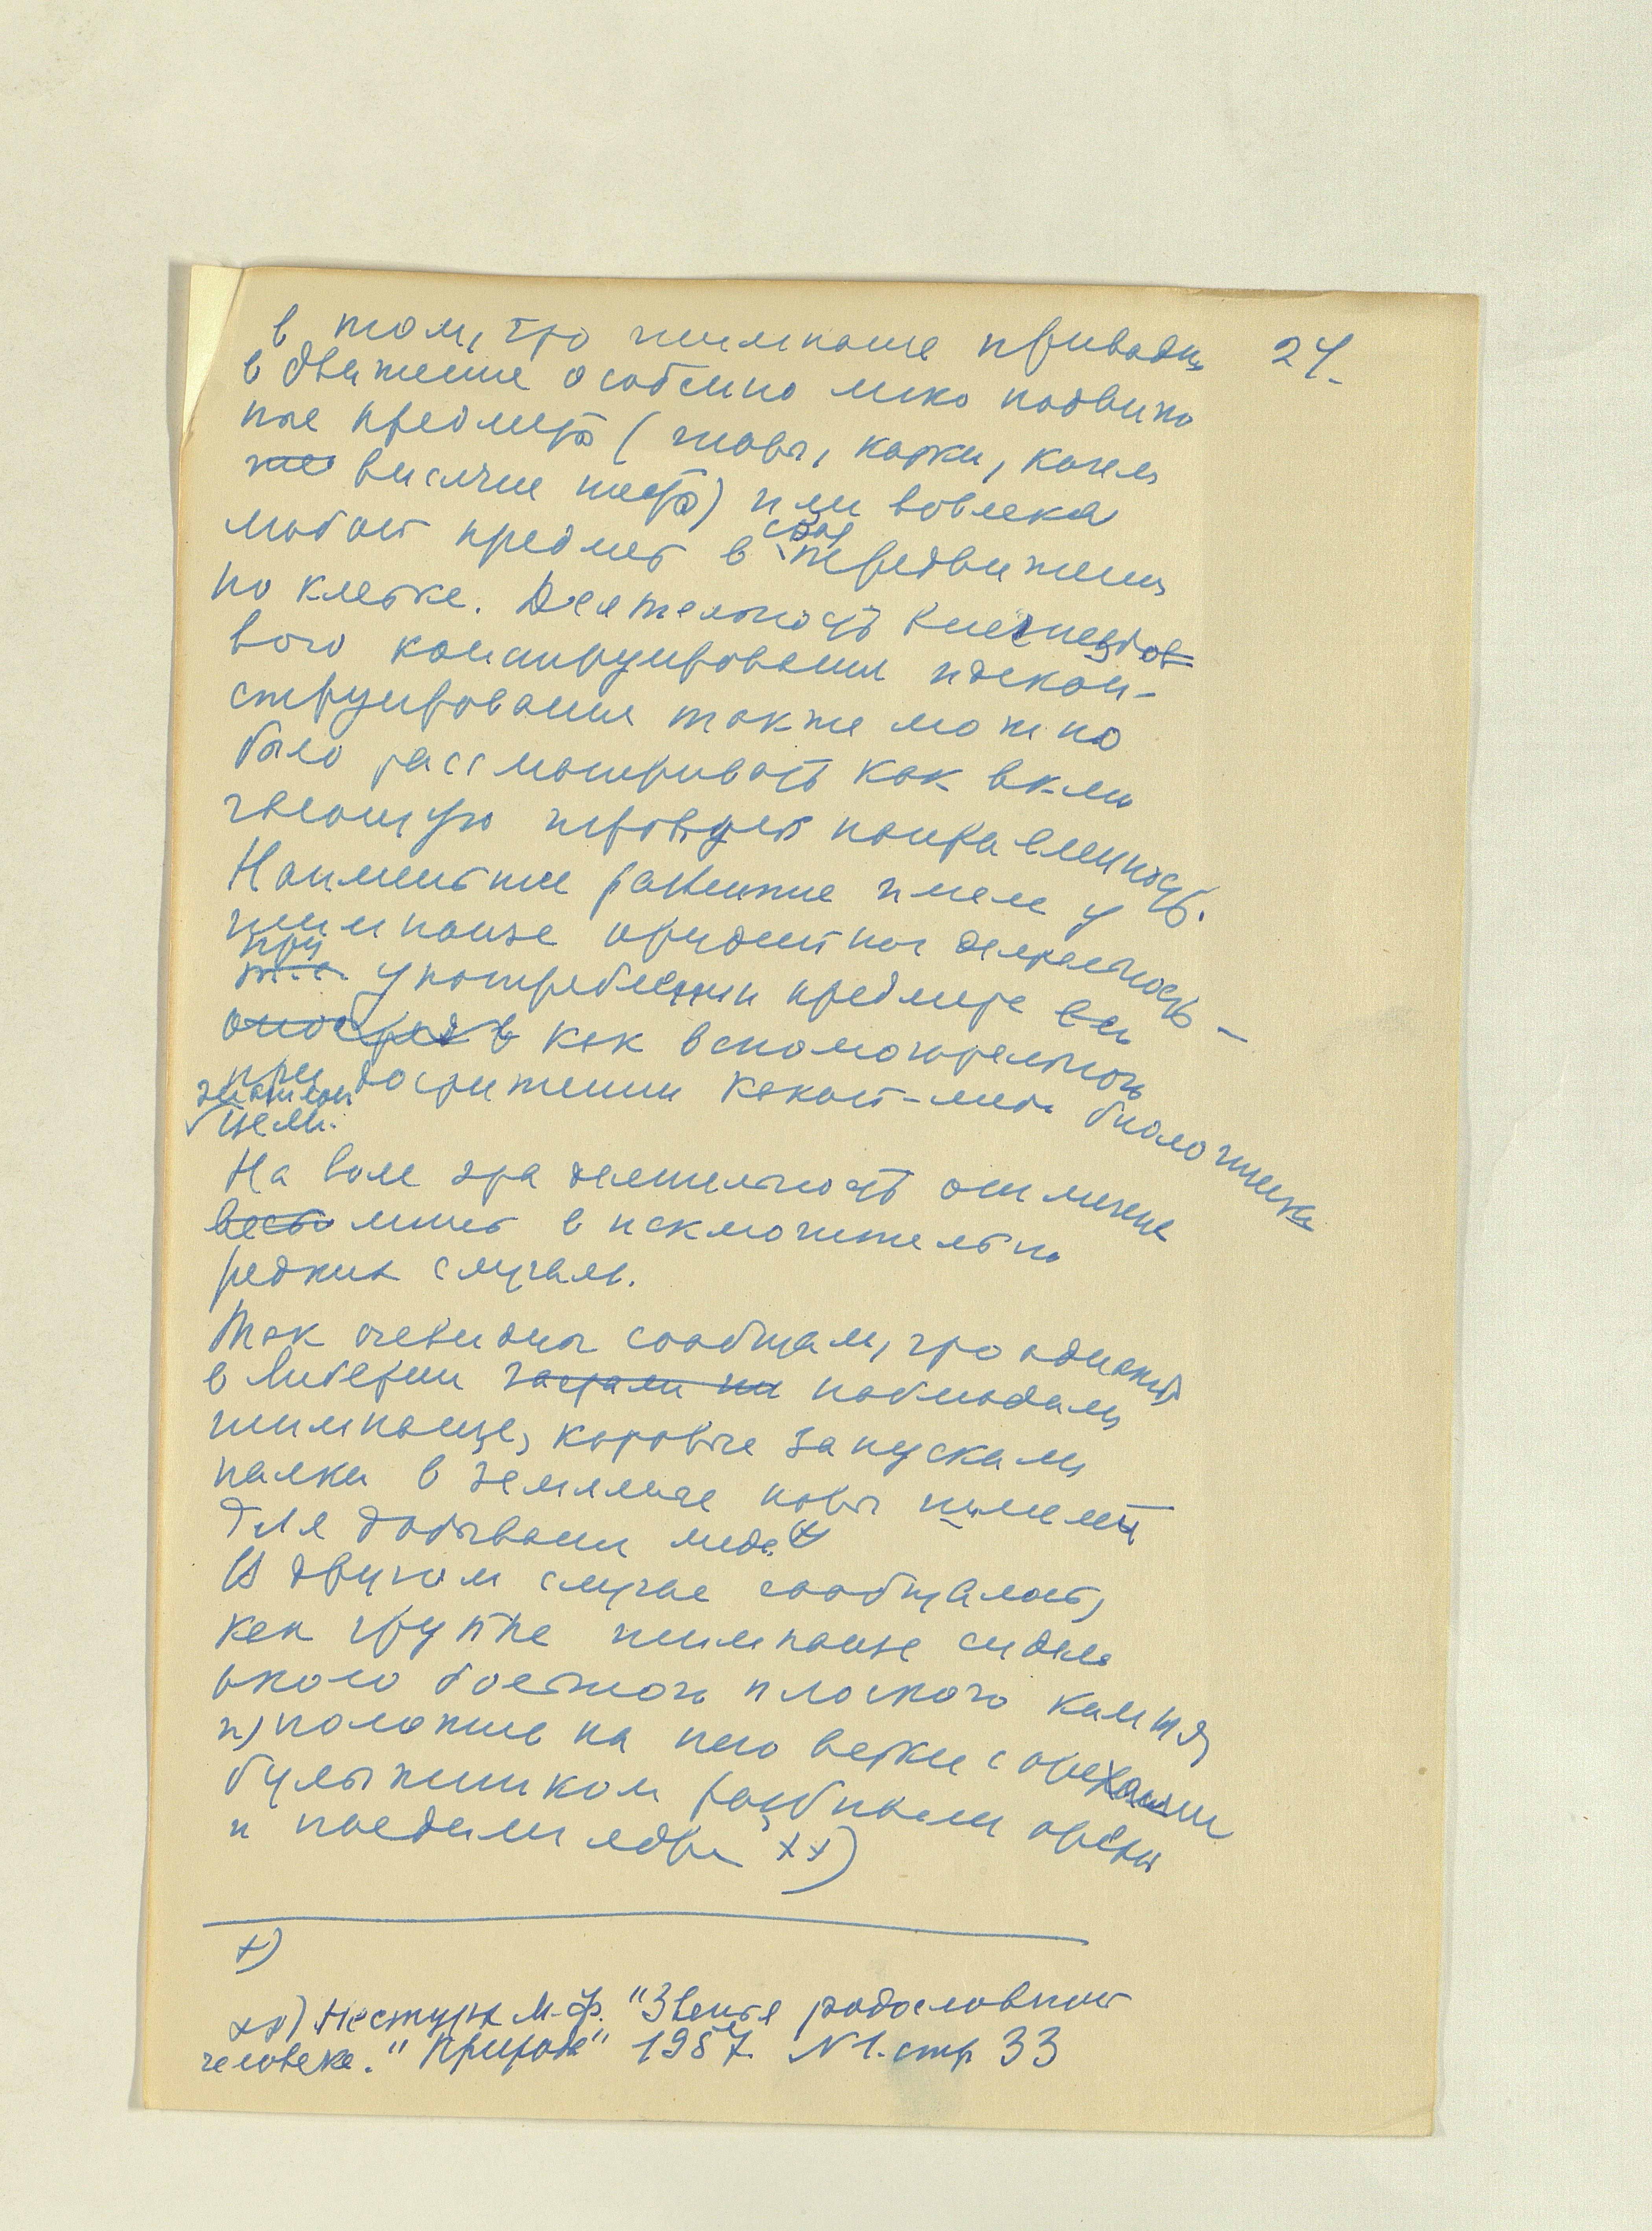 24.
в том, что шимпанзе приводит
в движение особенно легко подвиж
ные предметы (шары, , качели
висячие ) или вовлекая
любой предмет в свое передвижение
по клетке. Деятельность внегнездов
вого конструирования и декон-
струирования также можно
было рассматривать как вклю
чающую направленность.
Наименьшее развитие имела у
шимпанзе орудийная деятельность –
при употреблении предмета
как вспомогательного
при достижении какой-либо биологически
цели.
На воле эта деятельность отмечена
лишь в исключительно
редких случаях.
Так очевидцы сообщали, что однажды
в Либерии застали их наблюдали
шимпанзе, которые запускали
палки в земляные норы пчел
для добывания меда x)
В другом случае сообщалось,
как группа шимпанзе сидела
около большого плоского камня
и, положив на него ветки с орехами
булыжником разбивали орехи
и поедали ядра xx)
x)
xx) Нестурх М.Ф. "Звенья родословной
человека." "Природа" 1957. N 1. стр 33